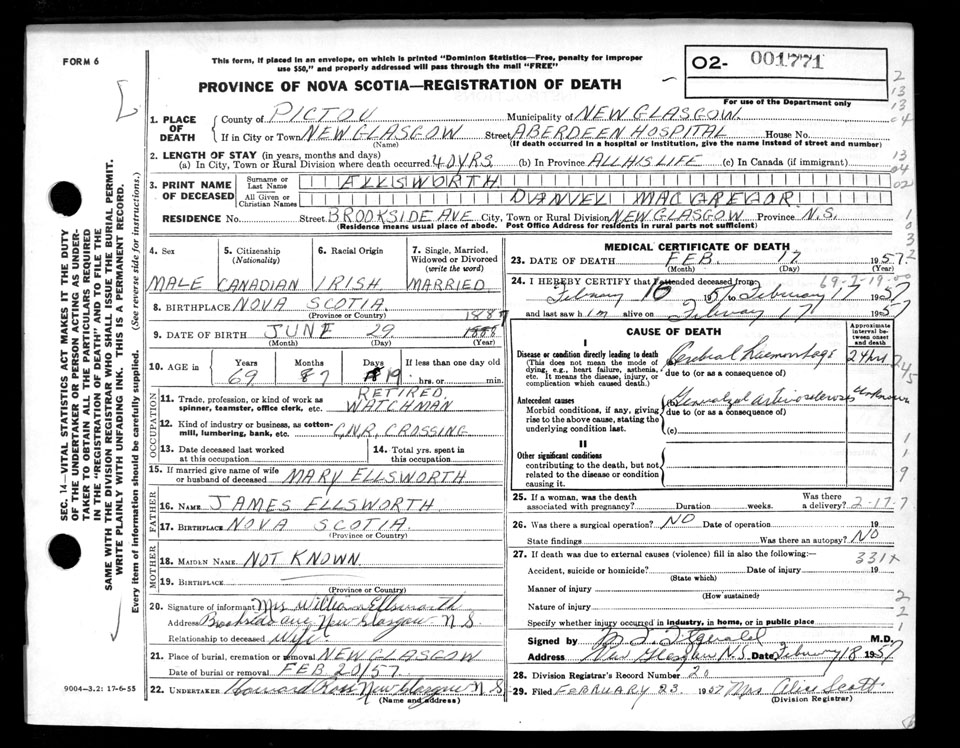 FORM 6
This form, if placed in an envelope, on which is printed "Dominion Statistics—Free, penalty for improper
use $50," and properly addressed will pass through the mail "FREE"
O2- 001771
PROVINCE OF NOVA SCOTIA—REGISTRATION OF DEATH
For use of the Department only
2
13
13
04
13
04
02
1
0
3
2
1. PLACE OF DEATH
County of PICTOU Municipality of NEW GLASGOW
If in City or Town NEW GLASGOW Street ABERDEEN HOSPITAL House No.
(Name) (If death occurred in a hospital or institution, give the name instead of street and number)
2. LENGTH OF STAY (in years, months and days)
(a) In City, Town or Rural Division where death occurred 40 YRS (b) In Province ALL HIS LIFE (c) In Canada (if immigrant)
3. PRINT NAME OF DECEASED
Surname or Last Name ELLSWORTH
All Given or Christian Names DANIEL MACGREGOR
RESIDENCE No. Street BROOKSIDE AVE City, Town or Rural Division NEW GLASGOW Province N.S.
(Residence means usual place of abode. Post Office Address for residents in rural parts not sufficient)
SEC. 14—VITAL STATISTICS ACT MAKES IT THE DUTY
OF THE UNDERTAKER OR PERSON ACTING AS UNDER-
TAKER TO OBTAIN ALL THE PARTICULARS REQUIRED
IN THE "REGISTRATION OF DEATH" AND TO FILE THE
SAME WITH THE DIVISION REGISTRAR WHO SHALL ISSUE THE BURIAL PERMIT.
WRITE PLAINLY WITH UNFADING INK. THIS IS A PERMANENT RECORD.
Every item of information should be carefully supplied. (See reverse side for instructions.)
4. Sex
MALE
5. Citizenship
(Nationality)
CANADIAN
6. Racial Origin
IRISH
7. Single, Married,
Widowed or Divorced
(write the word)
MARRIED
8. BIRTHPLACE NOVA SCOTIA
(Province or Country)
1887
9. DATE OF BIRTH JUNE 29 1888
(Month) (Day) (Year)
10. AGE in Years Months Days If less than one day old
69 87 19 hrs. or min.
OCCUPATION
11. Trade, profession, or kind of work as
spinner, teamster, office clerk, etc. RETIRED WATCHMAN
12. Kind of industry or business, as cotton-
mill, lumbering, bank, etc. C.N.R. CROSSING
13. Date deceased last worked
at this occupation
14. Total yrs. spent in
this occupation
15. If married give name of wife
or husband of deceased MARY ELLSWORTH
FATHER
16. NAME JAMES ELLSWORTH
17. BIRTHPLACE NOVA SCOTIA
(Province or Country)
MOTHER
18. MAIDEN NAME NOT KNOWN
19. BIRTHPLACE
(Province or Country)
20. Signature of informant Mrs William Ellsworth
Address Brookside Ave New Glasgow N.S.
Relationship to deceased Wife
21. Place of burial, cremation or removal NEW GLASGOW
Date of burial or removal FEB 20/57
22. UNDERTAKER New Glasgow N S
(Name and address)
9004-3.2: 17-6-55
MEDICAL CERTIFICATE OF DEATH
23. DATE OF DEATH FEB. 17 1957
(Month) (Day) (Year)
24. I HEREBY CERTIFY that I attended deceased from
February 16 1957 to February 17 1957
and last saw him alive on February 17 1957
CAUSE OF DEATH
Approximate
interval be-
tween onset
and death
I
Disease or condition directly leading to death
(This does not mean the mode of
dying, e.g., heart failure, asthenia,
etc. It means the disease, injury, or
complication which caused death.)
Cerebral Haemorrhage 24 hrs
due to (or as a consequence of)
Antecedent causes
Morbid conditions, if any, giving
rise to the above cause, stating the
underlying condition last.
Generalized Arteriosclerosis unknown
due to (or as a consequence of)
(c)
II
Other significant conditions
contributing to the death, but not
related to the disease or condition
causing it.
1
1
9
25. If a woman, was the death
associated with pregnancy? Duration weeks. Was there
a delivery? 2-17-7
26. Was there a surgical operation? NO Date of operation 19
State findings Was there an autopsy? NO
27. If death was due to external causes (violence) fill in also the following:—
331X
Accident, suicide or homicide? Date of injury 19
(State which)
Manner of injury
(How sustained)
Nature of injury
2
2
1
Specify whether injury occurred in industry, in home, or in public place
Signed by M.D.
Address New Glasgow N.S. Date February 18 1957
28. Division Registrar's Record Number 20
29. Filed FEBRUARY 23 1957 Mrs Alice Scott
(Division Registrar)